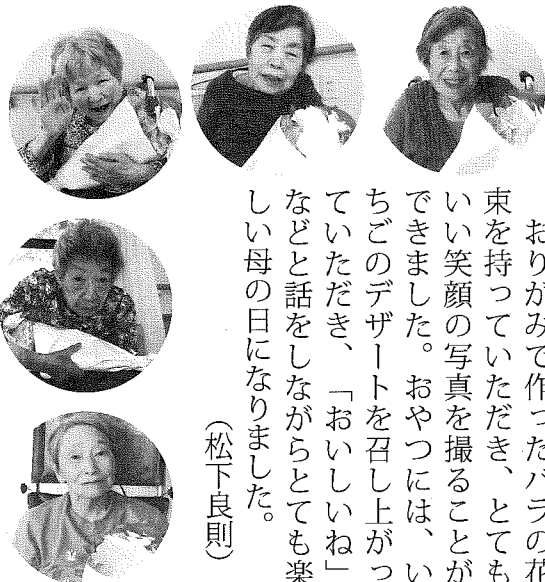 おりがみで作ったバラの花
束を持っていただき、とても
いい笑顔の写真を撮ることが
できました。おやつには、い
ちごのデザートを召し上がっ
ていただき、「おいしいね」
などと話をしながらとても楽
しい母の日になりました。
（松下良則）